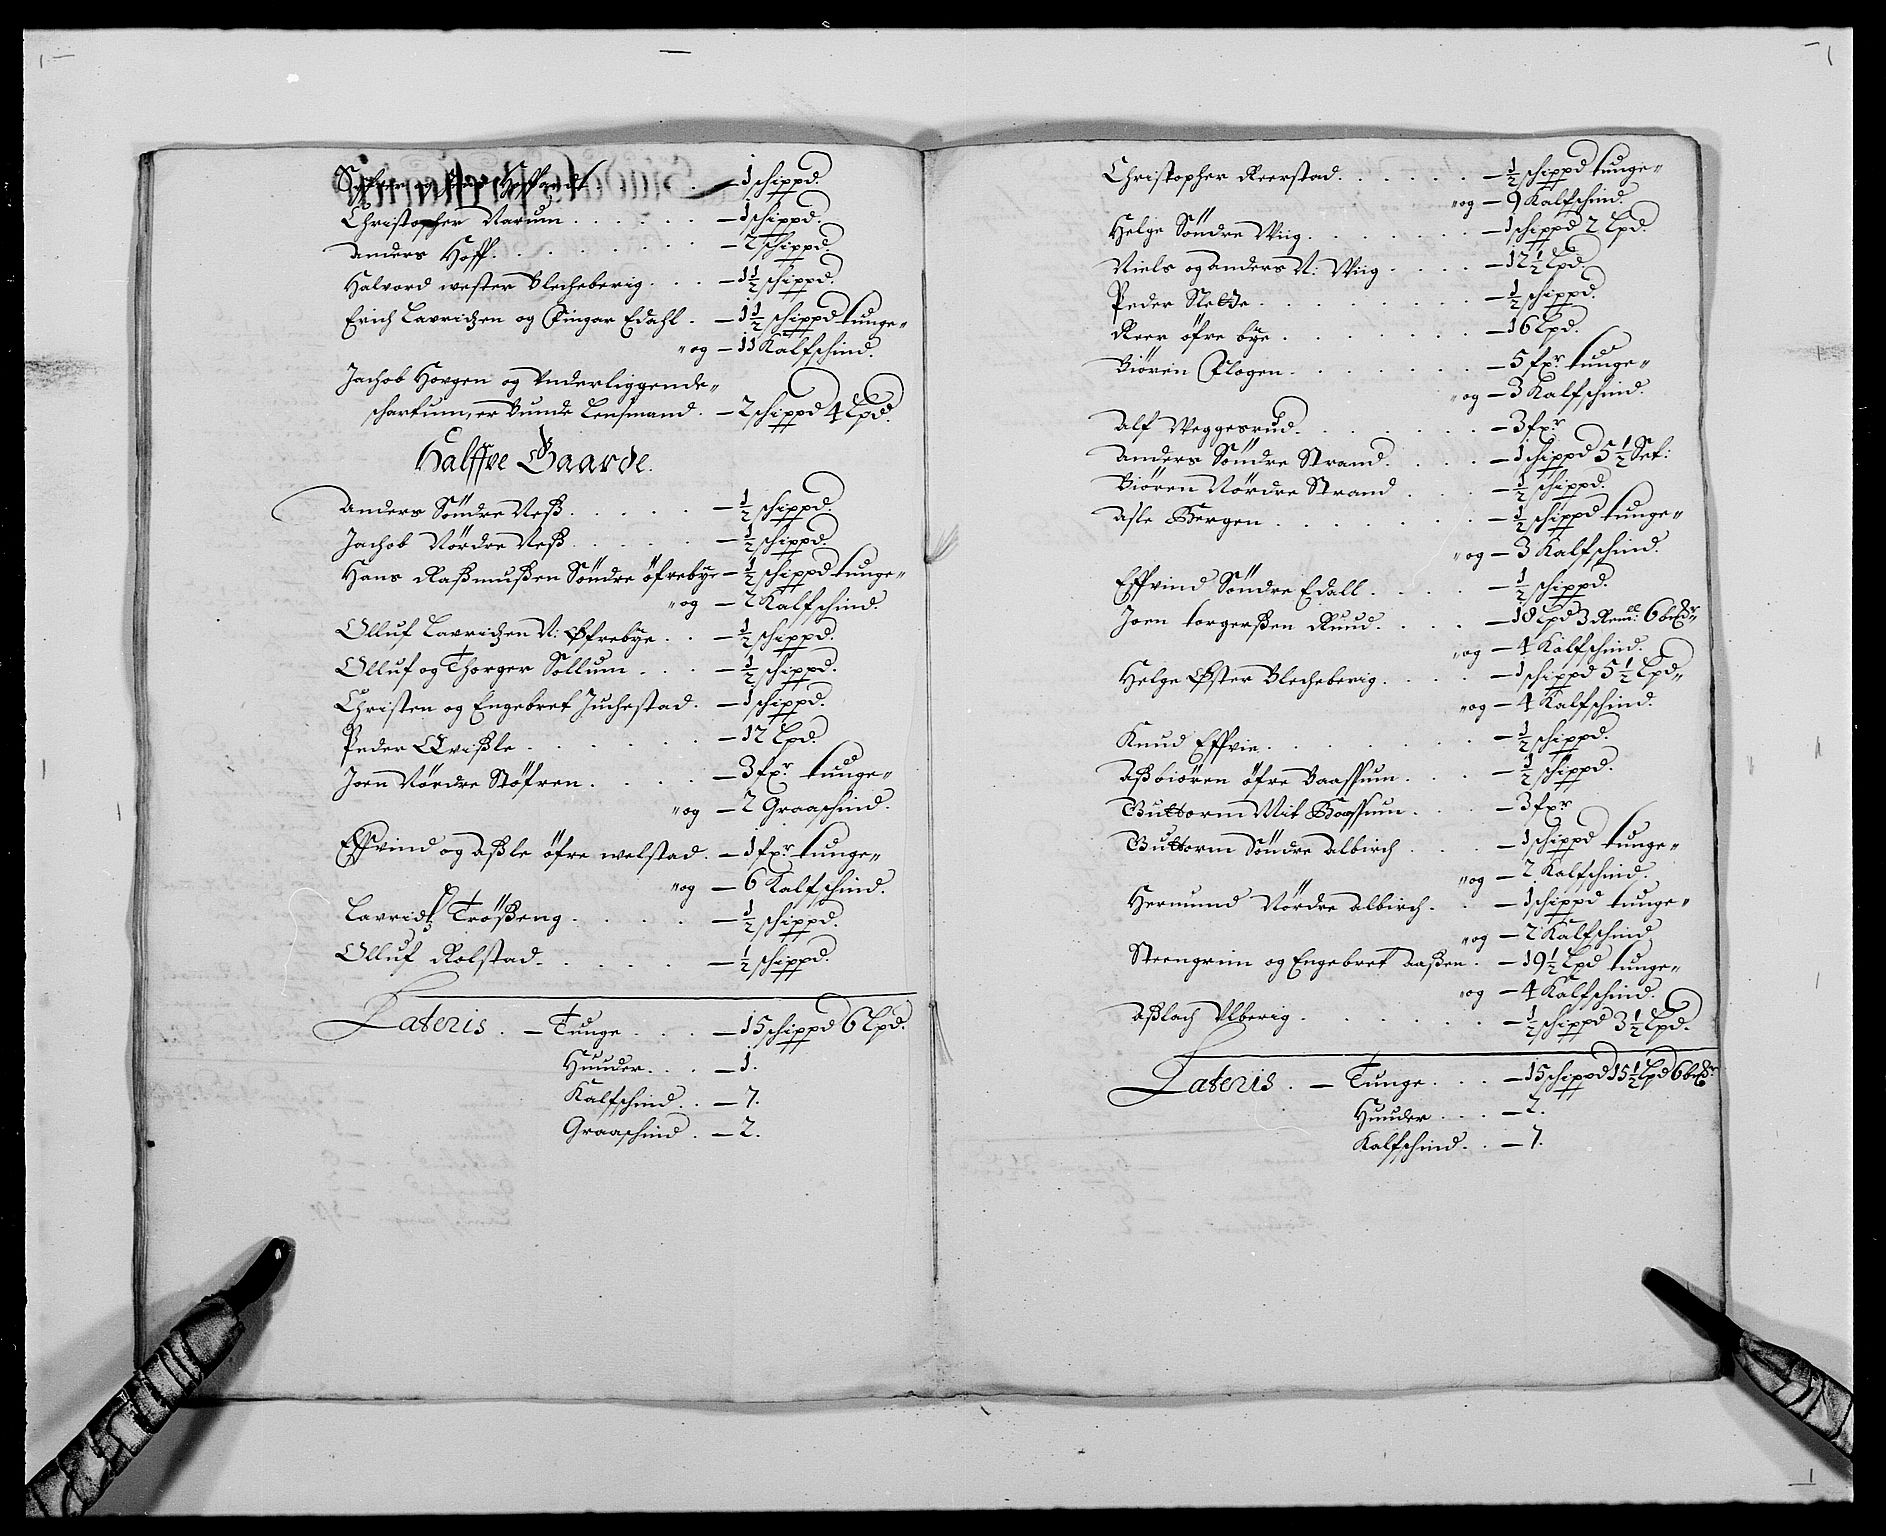 1 schippd
Christopher Narum . . . . . . — 1 schippd.
Anders Hoff . . . . . . . — 2 schippd.
Halvord wester Blecheberig . . . — 1½ schippd.
Erich Lavridzen og Gingar Edahl . — 1½ schippd tunge"
"og — 11 Kalfschind.
Jachob Horgen og Underliggende"
schartum, er Bunde Lensmand . — 2 schippd 4 Lpd.
Halffve Gaarde.
Anders Söndre Neß . . . . . — ½ schippd.
Jachob Nördre Neß . . . . . — ½ schippd.
Hans Raßmußen Söndre öfrebye — ½ schippd tunge"
"og — 2 Kalfschind.
Olluf Lavridzen N: Øfrebye . . — ½ schippd.
Olluf og Thorger Sollum . . . — ½ schippd.
Christen og Engebret Juchestad . — 1 schippd.
Peder Qvißle . . . . . . — 12 Lpd.
Joen Nördre Stöfren . . . . — 3 fxr. tunge"
"og — 2 Graaschind.
Effvind og Aßle öfre welstad . — 1 fxr. tunge"
"og — 6 Kalfschind.
Lavridz Trößeng . . . . . — ½ schippd.
Olluf Rolstad . . . . . . — ½ schippd.
Lateris . — Tunge . . . . — 15 schippd 6 Lpd.
Huuder . . . — 1.
Kalfschind . . — 7.
Graaschind . — 2.
Christopher Reerstad . . . . . . — ½ schippd tunge"
"og — 9 Kalfschind.
Helge Söndre Wiig . . . . . . — 1 schippd 2 Lpd.
Niels og Anders N: Wiig . . . . — 12½ Lpd.
Peder Slette . . . . . . . . — ½ schippd.
Reer öfre bye . . . . . . . — 16 Lpd.
Biören Flogen . . . . . . . — 5 fxr. tunge"
"og — 3 Kalfschind.
Alf Weggesrud . . . . . . . — 3 fxr
Anders Söndre Strand . . . . — 1 schippd 5½ Set:
Biören Nördre Strand . . . . — ½ schippd.
Asle Bergen . . . . . . . — ½ schippd tunge"
"og — 3 Kalfschind.
Effvind Söndre Edall . . . . — ½ schippd.
Joen torgerßen Ruud . . . . — 18 Lpd 3 Reml: 6
"og — 4 Kalfschind.
Helge Øster Blecheberig . . . . — 1 schippd 5½ Lpd"
"og — 4 Kalfschind.
Knud Effvie . . . . . . . — ½ schippd.
Aßbiören öfre Baaßum . . . — ½ schippd.
Guttorm Mit Baaßum . . . — 3 fxr
Guttorm Söndre Albirch . . . — 1 schippd tunge"
"og — 2 Kalfschind.
Hermund Nördre Albirch . . . — 1 schippd tunge"
"og — 2 Kalfschind
Steengrim og Engebret Aaßen . — 19½ Lpd tunge"
"og — 4 Kalfschind.
Aßlach Ulberig . . . . . . . — ½ schippd 3½ Lpd.
Lateris . — Tunge . . . — 15 schippd 15½ Lpd 6
Huuder . . . — 2.
Kalfschind . . — 7.